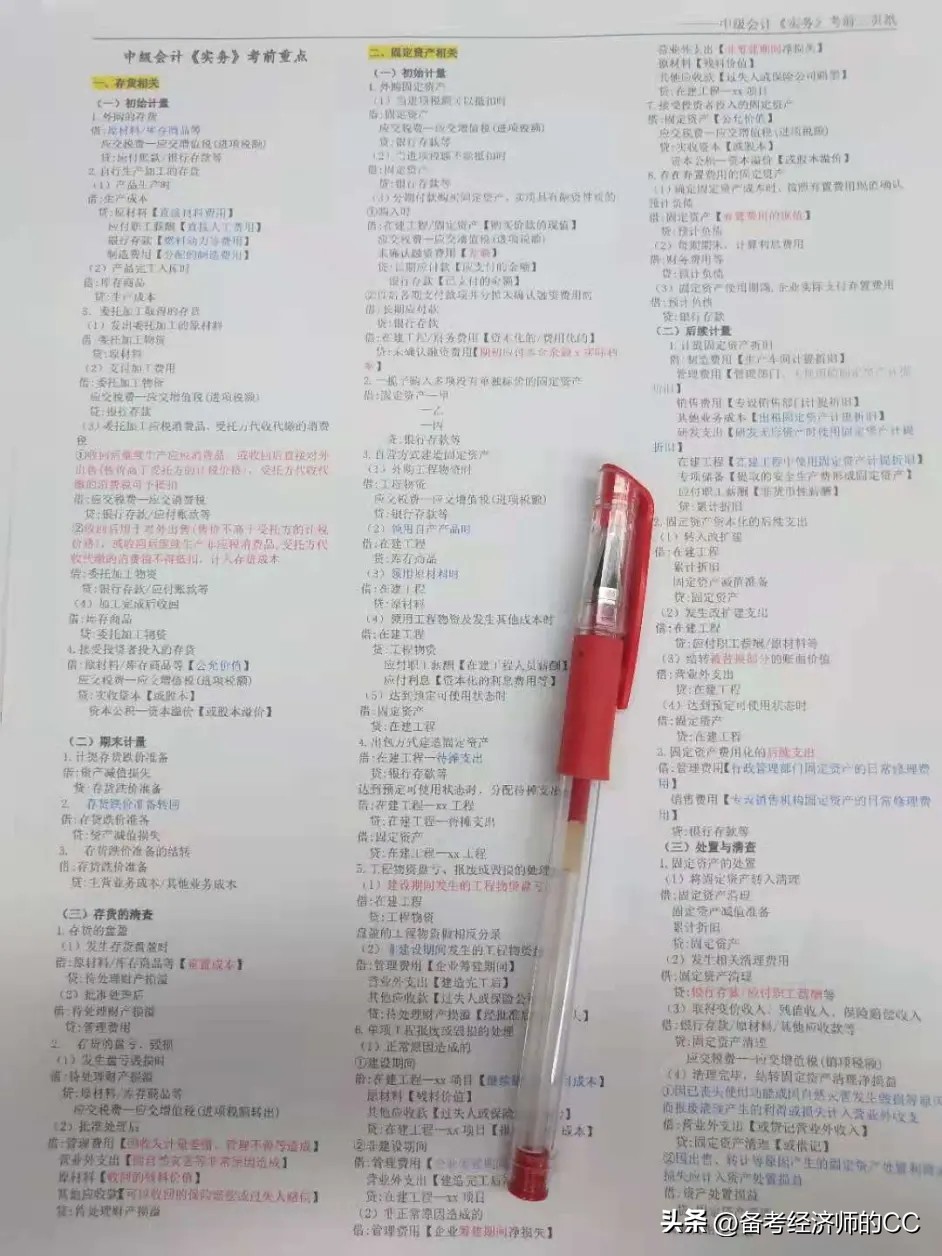 ——中级会计《实务》考前三页纸
中级会计《实务》考前重点
一、存货相关
（一）初始计量
1.外购的存货
借:原材料/库存商品等
应交税费—应交增值税(进项税额)
贷:应付账款/银行存款等
2.自行生产加工的存货
（1）产品生产时
借:生产成本
贷:原材料【直接材料费用】
应付职工薪酬【直接人工费用】
银行存款【燃料动力等费用】
制造费用【分配的制造费用】
（2）产品完工入库时
借:库存商品
贷:生产成本
3. 委托加工取得的存货
（1）发出委托加工的原材料
借:委托加工物资
贷:原材料
（2）支付加工费用
借:委托加工物资
应交税费—应交增值税(进项税额)
贷:银行存款
（3)委托加工应税消费品，受托方代收代缴的消费
税
①收回后继续生产应税消费品，或收回后直接对外
出售(售价高于受托方的计税价格)，受托方代收代
缴的消费税可予抵扣
借:应交税费—应交消费税
贷:银行存款/应付账款等
②收回后用于对外出售(售价不高于受托方的计税
价格)，或收回后继续生产非应税消费品,受托方代
收代缴的消费税不得抵扣，计入存货成本
借:委托加工物资
贷:银行存款/应付账款等
（4）加工完成后收回
借:库存商品
贷:委托加工物资
4.接受投资者投入的存货
借:原材料/库存商品等【公允价值】
应交税费—应交增值税(进项税额)
贷:实收资本【或股本】
资本公积—资本溢价【或股本溢价】
（二）期末计量
1.计提存货跌价准备
借:资产减值损失
贷:存货跌价准备
2. 存货跌价准备转回
借:存货跌价准备
贷:资产减值损失
3. 存货跌价准备的结转
借:存货跌价准备
贷:主营业务成本/其他业务成本
（三）存货的清查
1.存货的盘盈
（1）发生存货盘盈时
借:原材料/库存商品等【重置成本】
贷:待处理财产损溢
（2）批准处理后
借:待处理财产损溢
贷:管理费用
2. 存货的盘亏、毁损
（1）发生盘亏毁损时
借:待处理财产损溢
贷:原材料/库存商品等
应交税费—应交增值税(进项税额转出)
（2）批准处理后
借:管理费用【因收发计量差错、管理不善等造成】
营业外支出【因自然灾害等非常原因造成】
原材料【收回的残料价值】
其他应收款【可以收回的保险赔偿或过失人赔偿】
贷:待处理财产损溢
二、固定资产相关
（一）初始计量
1.外购固定资产
（1）当进项税额可以抵扣时
借:固定资产
应交税费—应交增值税(进项税额)
贷:银行存款等
（2）当进项税额不能抵扣时
借:固定资产
贷:银行存款等
（3）分期付款购买固定资产，实质具有融资性质的
①购入时
借:在建工程/固定资产【购买价款的现值】
应交税费—应交增值税(进项税额)
未确认融资费用【差额】
贷:长期应付款【应支付的金额】
银行存款【已支付的金额】
②以后各期支付款项并分摊未确认融资费用时
借:长期应付款
贷:银行存款
借:在建工程/财务费用【资本化的/费用化的】
贷:未确认融资费用【期初应付本金余额×实际利
率】
2.一揽子购入多项没有单独标价的固定资产
借:固定资产—甲
—乙
—丙
贷:银行存款等
3.自营方式建造固定资产
（1）外购工程物资时
借:工程物资
应交税费—应交增值税(进项税额)
贷:银行存款等
（2）领用自产产品时
借:在建工程
贷:库存商品
（3）领用原材料时
借:在建工程
贷:原材料
（4）领用工程物资及发生其他成本时
借:在建工程
贷:工程物资
应付职工薪酬【在建工程人员薪酬】
应付利息【资本化的利息费用等】
（5）达到预定可使用状态时
借:固定资产
贷:在建工程
4.出包方式建造固定资产
借:在建工程—待摊支出
贷:银行存款等
达到预定可使用状态时，分配待摊支出
借:在建工程—xx工程
贷:在建工程—待摊支出
借:固定资产
贷:在建工程—xx工程
5.工程物资盘亏、报废或毁损的处理
（1）建设期间发生的工程物资盘亏
借:在建工程
贷:工程物资
盘盈的工程物资做相反分录
（2）非建设期间发生的工程物资
借:管理费用【企业筹建期间】
营业外支出【建造完工后】
其他应收款【过失人或保险公
贷:待处理财产损溢【经批准后 人】
6.单项工程报废或毁损的处理
（1）正常原因造成的
①建设期间
借:在建工程—xx项目【继续 成本】
原材料【残料价值】
其他应收款【过失人或保险
贷:在建工程—xx项目【报 成本】
②非建设期间
借:管理费用【企业筹建期间
营业外支出【建造完工后
贷:在建工程—xx项目
（2）非正常原因造成的
借:管理费用【企业筹建期间净损失】
营业外支出【非筹建期间净损失】
原材料【残料价值】
其他应收款【过失人或保险公司赔偿】
贷:在建工程—xx项目
7.接受投资者投入的固定资产
借:固定资产【公允价值】
应交税费—应交增值税(进项税额)
贷:实收资本【或股本】
资本公积—资本溢价【或股本溢价】
8.存在弃置费用的固定资产
（1)确定固定资产成本时，按照弃置费用现值确认
预计负债
借:固定资产【弃置费用的现值】
贷:预计负债
（2）每期期末，计算利息费用
借:财务费用等
贷:预计负债
（3）固定资产使用期满,企业实际支付弃置费用
借:预计负债
贷:银行存款
（二）后续计量
1.计提固定资产折旧
借:制造费用【生产车间计提折旧】
管理费用【管理部门、未使用的固定资产计提
折旧】
销售费用【专设销售部门计提折旧】
其他业务成本【出租固定资产计提折旧】
研发支出【研发无形资产时使用固定资产计提
折旧】
在建工程【在建工程中使用固定资产计提折旧】
专项储备【提取的安全生产费形成固定资产】
应付职工薪酬【非货币性薪酬】
贷:累计折旧
2.固定资产资本化的后续支出
（1）转入改扩建
借:在建工程
累计折旧
固定资产减值准备
贷:固定资产
（2）发生改扩建支出
借:在建工程
贷:应付职工薪酬/原材料等
（3）结转被替换部分的账面价值
借:营业外支出
贷:在建工程
（4）达到预定可使用状态时
借:固定资产
贷:在建工程
3.固定资产费用化的后续支出
借:管理费用【行政管理部门固定资产的日常修理费
用】
销售费用【专设销售机构固定资产的日常修理费
用】
贷:银行存款等
（三）处置与清查
1.固定资产的处置
（1）将固定资产转入清理
借:固定资产清理
固定资产减值准备
累计折旧
贷:固定资产
（2）发生相关清理费用
借:固定资产清理
贷:银行存款/应付职工薪酬等
（3）取得变价收入、残值收入、保险赔偿收入
借:银行存款/原材料/其他应收款等
贷:固定资产清理
应交税费—应交增值税(销项税额)
（4）清理完毕，结转固定资产清理净损益
①因已丧失使用功能或因自然灾害发生毁损等原因
而报废清理产生的利得或损失计入营业外收支
借:营业外支出【或贷记营业外收入】
贷:固定资产清理【或借记】
②因出售、转让等原因产生的固定资产处置利得或
损失应计入资产处置损益
借:资产处置损益
头条 @备考经济师的CC